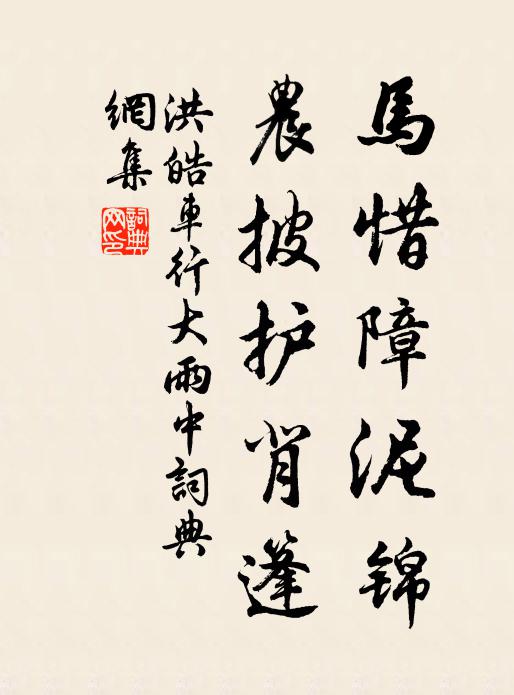 馬惜障泥锦
農披护背篷
洪皓車行大雨中詞典
網集
詞典
网印